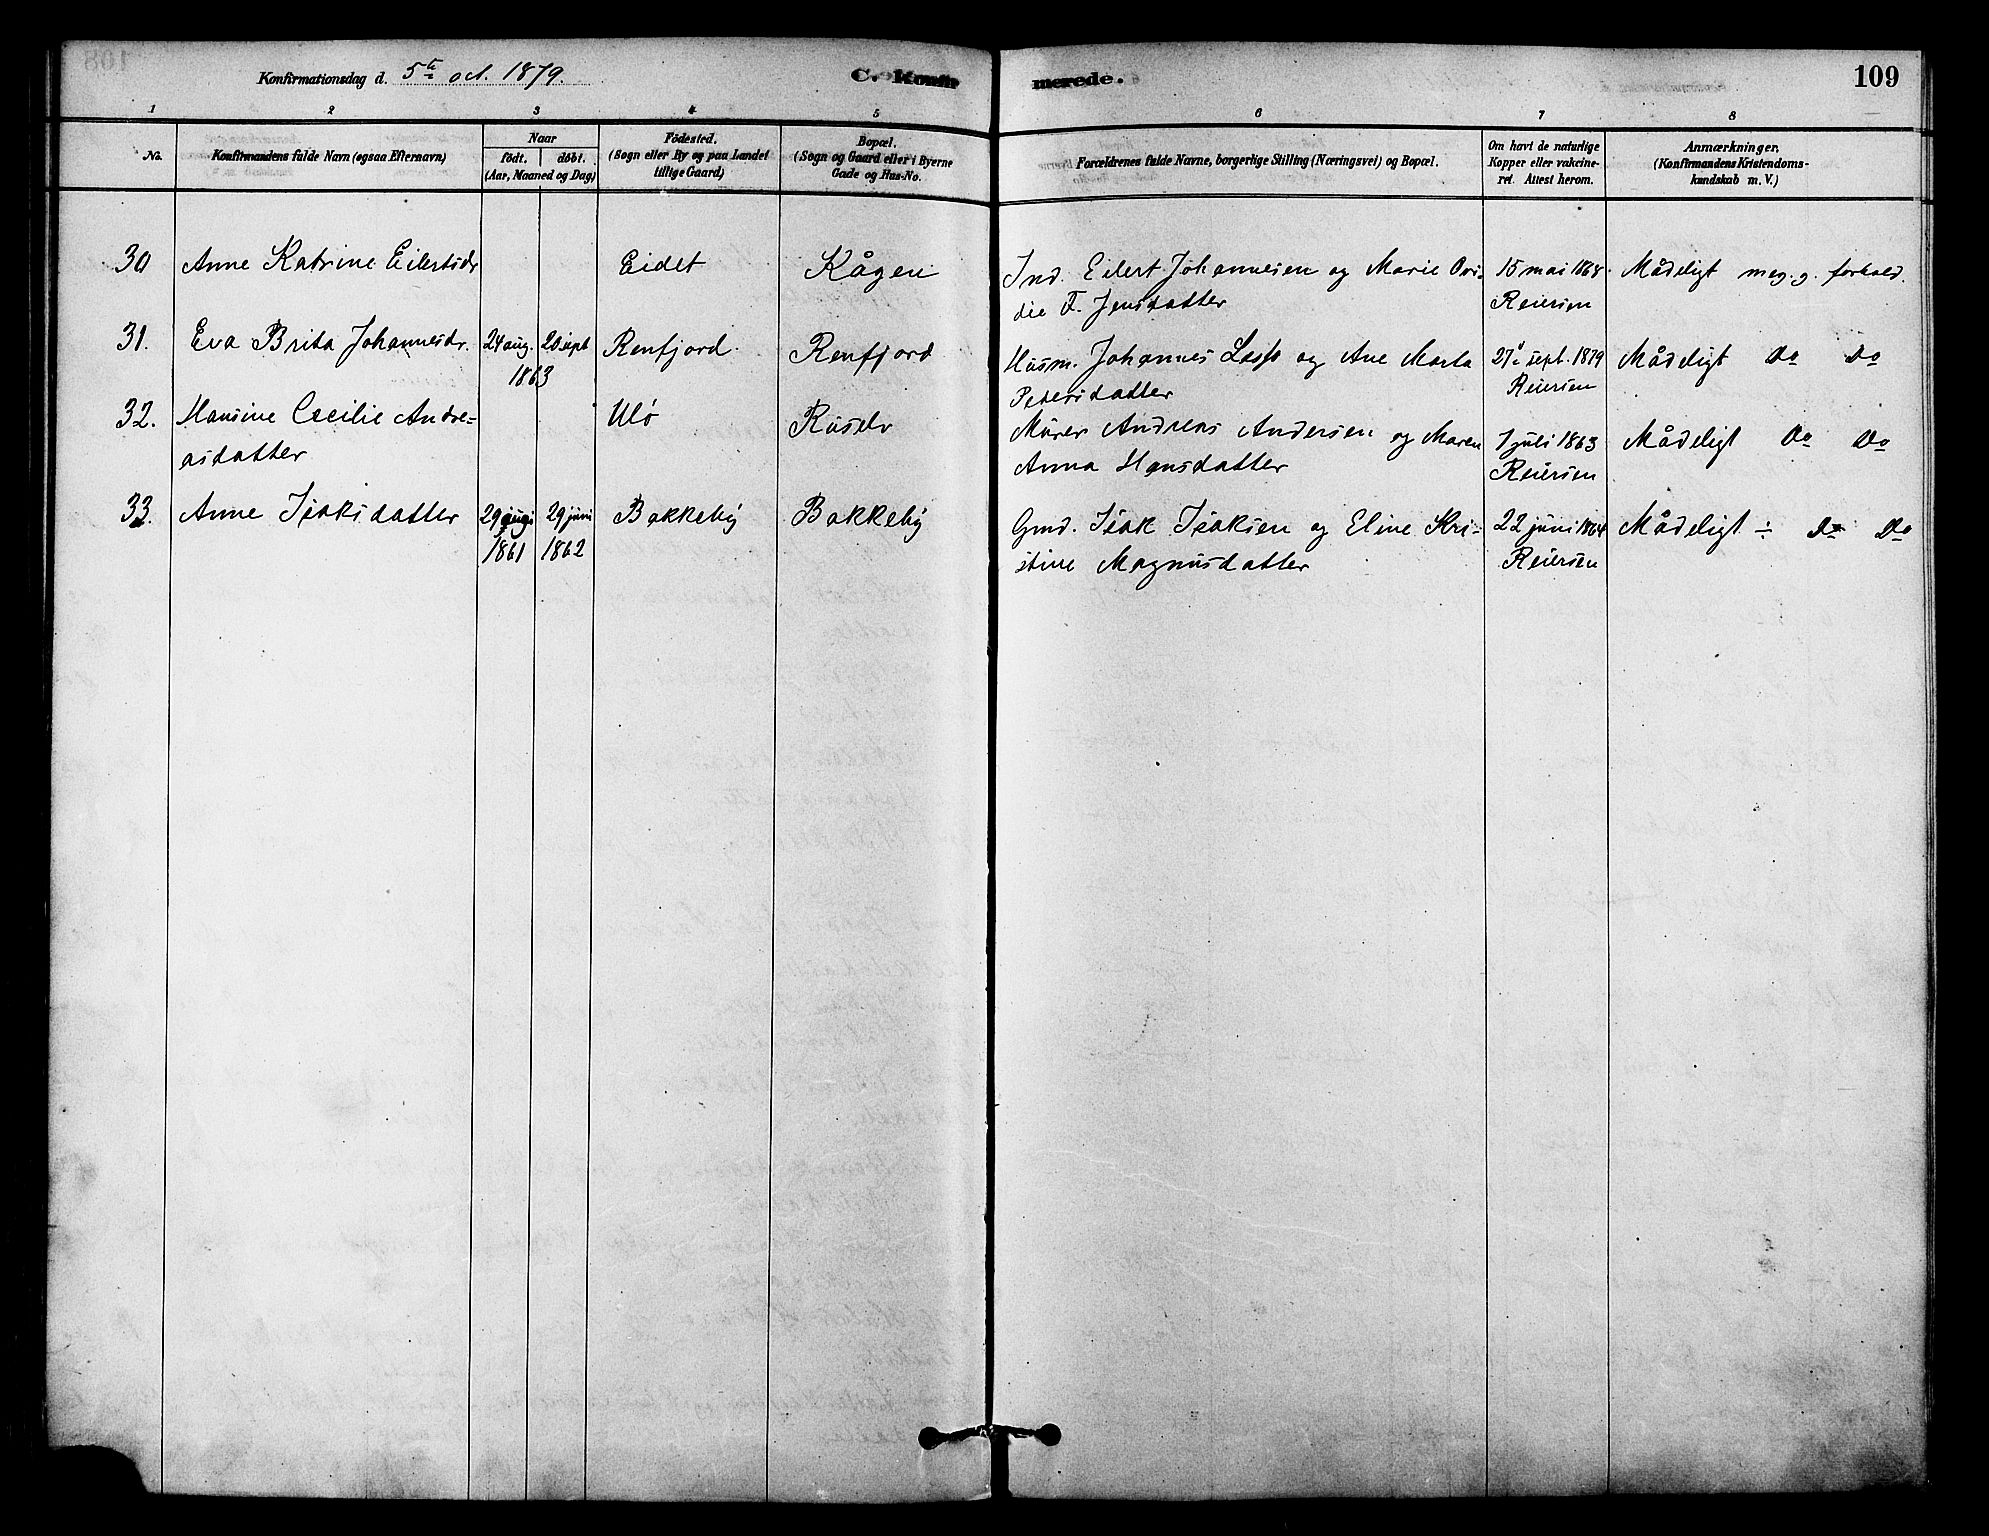 Konfirmationsdag d. 5te oct. 1879.
C. Konfir
merede.
109
1 2 3 4 5 6 7 8
No.
Konfirmandens fulde Navn (ogsaa Efternavn)
Naar
födt. döbt.
(Aar, Maaned og Dag)
Födested.
(Sogn eller By og paa Landet
tillige Gaard)
Bopæl.
(Sogn og Gaard eller i Byerne
Gade og Hus-No.
Forældrenes fulde Navne, borgerlige Stilling (Næringsvei) og Bopæl.
Om havt de naturlige
Kopper eller vakcine-
ret. Attest herom.
Anmærkninger.
(Konfirmandens Kristendoms-
kundskab m. V.)
30 Anne Katrine Eilertsdr Eidet Kågen Ind. Eilert Johannesen og Marie Ovi- 15 mai 1868 Mådeligt meg. g. forhold.
die F. Jensdatter Reiersen
31. Eva Brita Johannesdr. 24 aug. 20 sept Renfjord. Renfjord Husm. Johannes og Ane Marta 27 sept. 1879 Mådeligt Do Do
1863 Petersdatter Reiersen
32. Hansine Cecilie Andre- Ulö Murer Andreas Andersen og Maren 1 juli 1863 Mådeligt Do Do
asdatter Anna Hansdatter Reiersen
33. Anne Isaksdatter 29 29 juni Bakkeby Bakkeby Gmd. Isak Isaksen og Eline Kri- 22 juni 1864 Mådeligt ÷ Do Do
1861 1862 stine Magnusdatter Reiersen